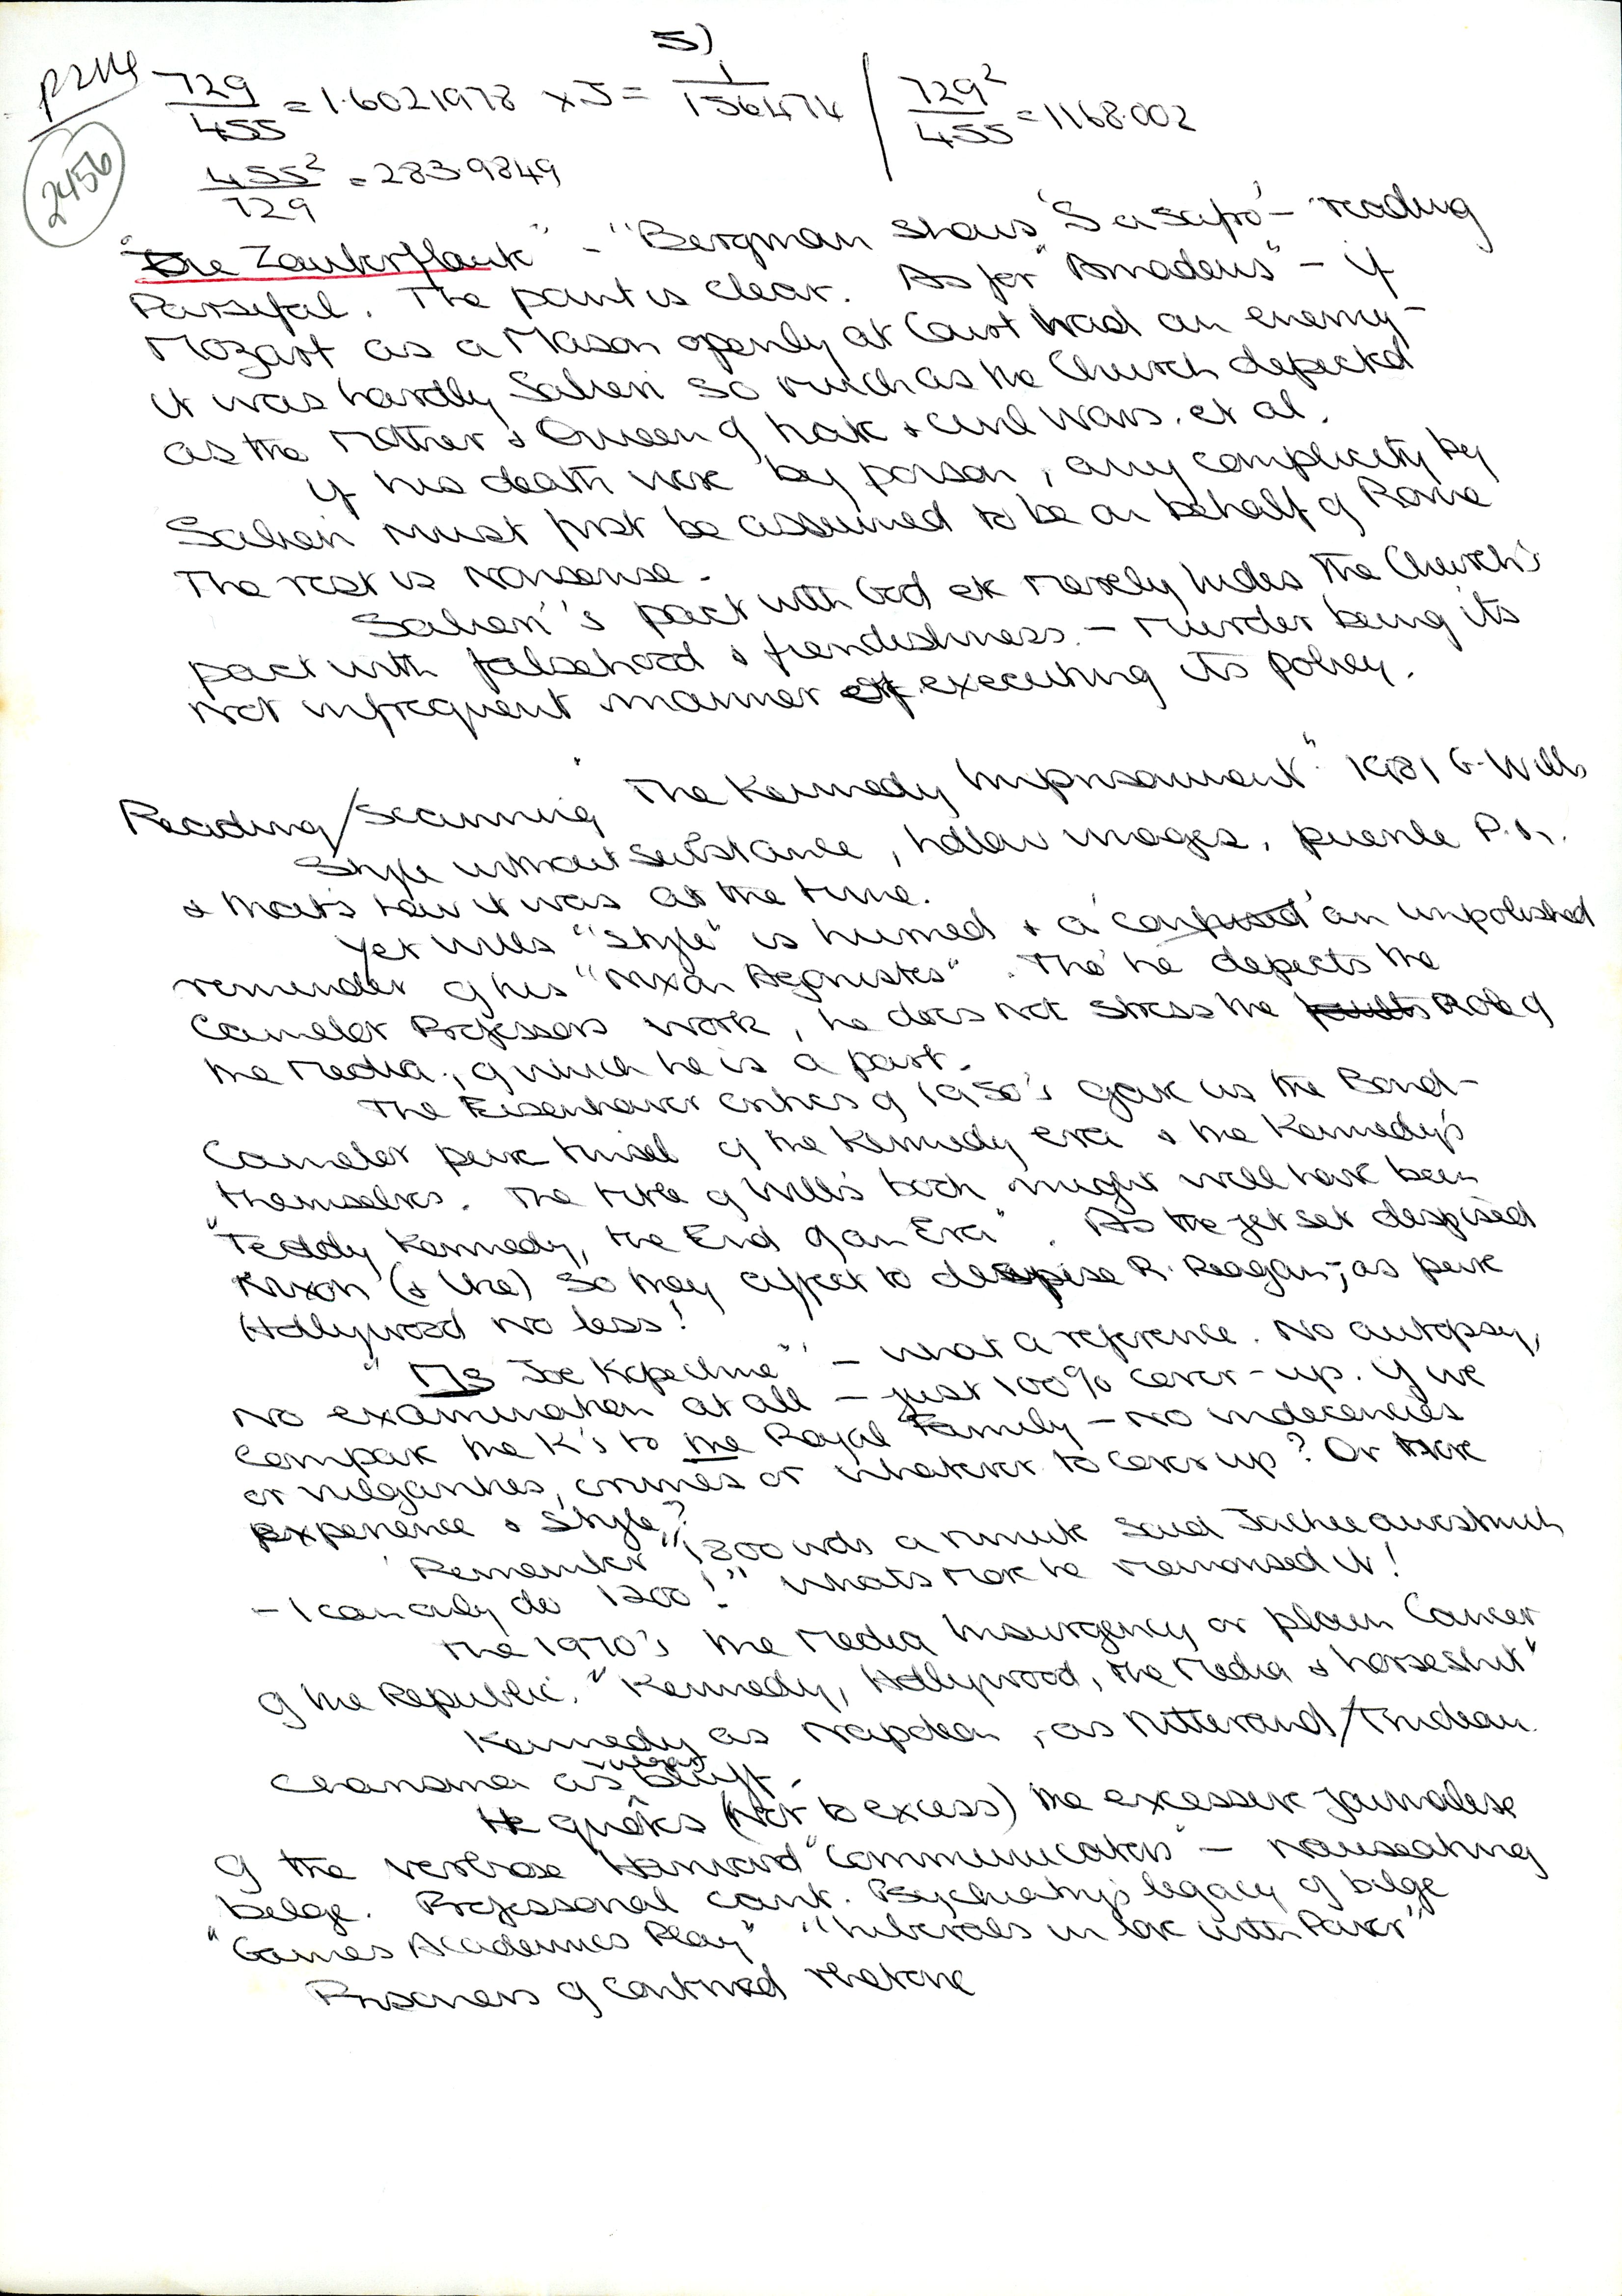 5)
P214
2456
729/455 = 1.6021978 x 5 = 1/156474 / 729²/455 = 1168.002
455²/729 = 283.9849
"Die Zauberflaute" - "Bergman shows 'Sarastro' - reading
Parsifal. The point is clear. As for "Amadeus" - if
Mozart as a Mason openly at Court had an enemy -
it was hardly Salieri so much as the Church depicted
as the Mother & Queen of hate & civil wars. et al.
If his death were by poison, any complicity by
Salieri must first be assumed to be on behalf of Rome
The rest is nonsense.
Salieri's pact with God etc merely hides the Church's
pact with falsehood & fiendishness. - Murder being its
not infrequent manner of executing its policy.
Reading/Scanning "The Kennedy Imprisonment" 1981 G. Wills
Style without substance, hollow images, puerile P.R.
& that's how it was at the time.
Yet Wills "style" is hurried & a confused an unpolished
reminder of his "Nixon Agonistes". Tho' he depicts the
Camelot Professors work, he does not stress the faults Role of
the Media, of which he is a part.
The Eisenhower critics of 1950's gave us the Bond-
Camelot pure tinsel of the Kennedy era & the Kennedy's
themselves. The title of Wills book might well have been
"Teddy Kennedy, the End of an Era". As the jet set despised
Nixon (& Ike) so they affect to despise R. Reagan; as pure
Hollywood no less!
"Ms Joe Kopechne" - what a reference. No autopsy,
no examination at all - just 100% cover-up. If we
compare the K's to the Royal Family - no indecencies
or vulgarities, crimes or whatever to cover up? Or more
experience & style?
Remember "1800 wds a minute said Jackie awestruck
- I can only do 1200!" What's more he memorised it!
The 1970's the Media Insurgency or plain Cancer
of the Republic. "Kennedy, Hollywood, the Media & horseshit"
Kennedy as Napoleon, as Mitterand/Trudeau.
Charisma as vulgar bluff.
He quotes (not to excess) the excessive journalese
of the verbose "Harvard "Communicators" - nauseating
belge. Professional cant. Psychiatry's legacy of bilge
"Games Academics Play" "Liberals in love with Power"
Prisoners of contrived rhetoric